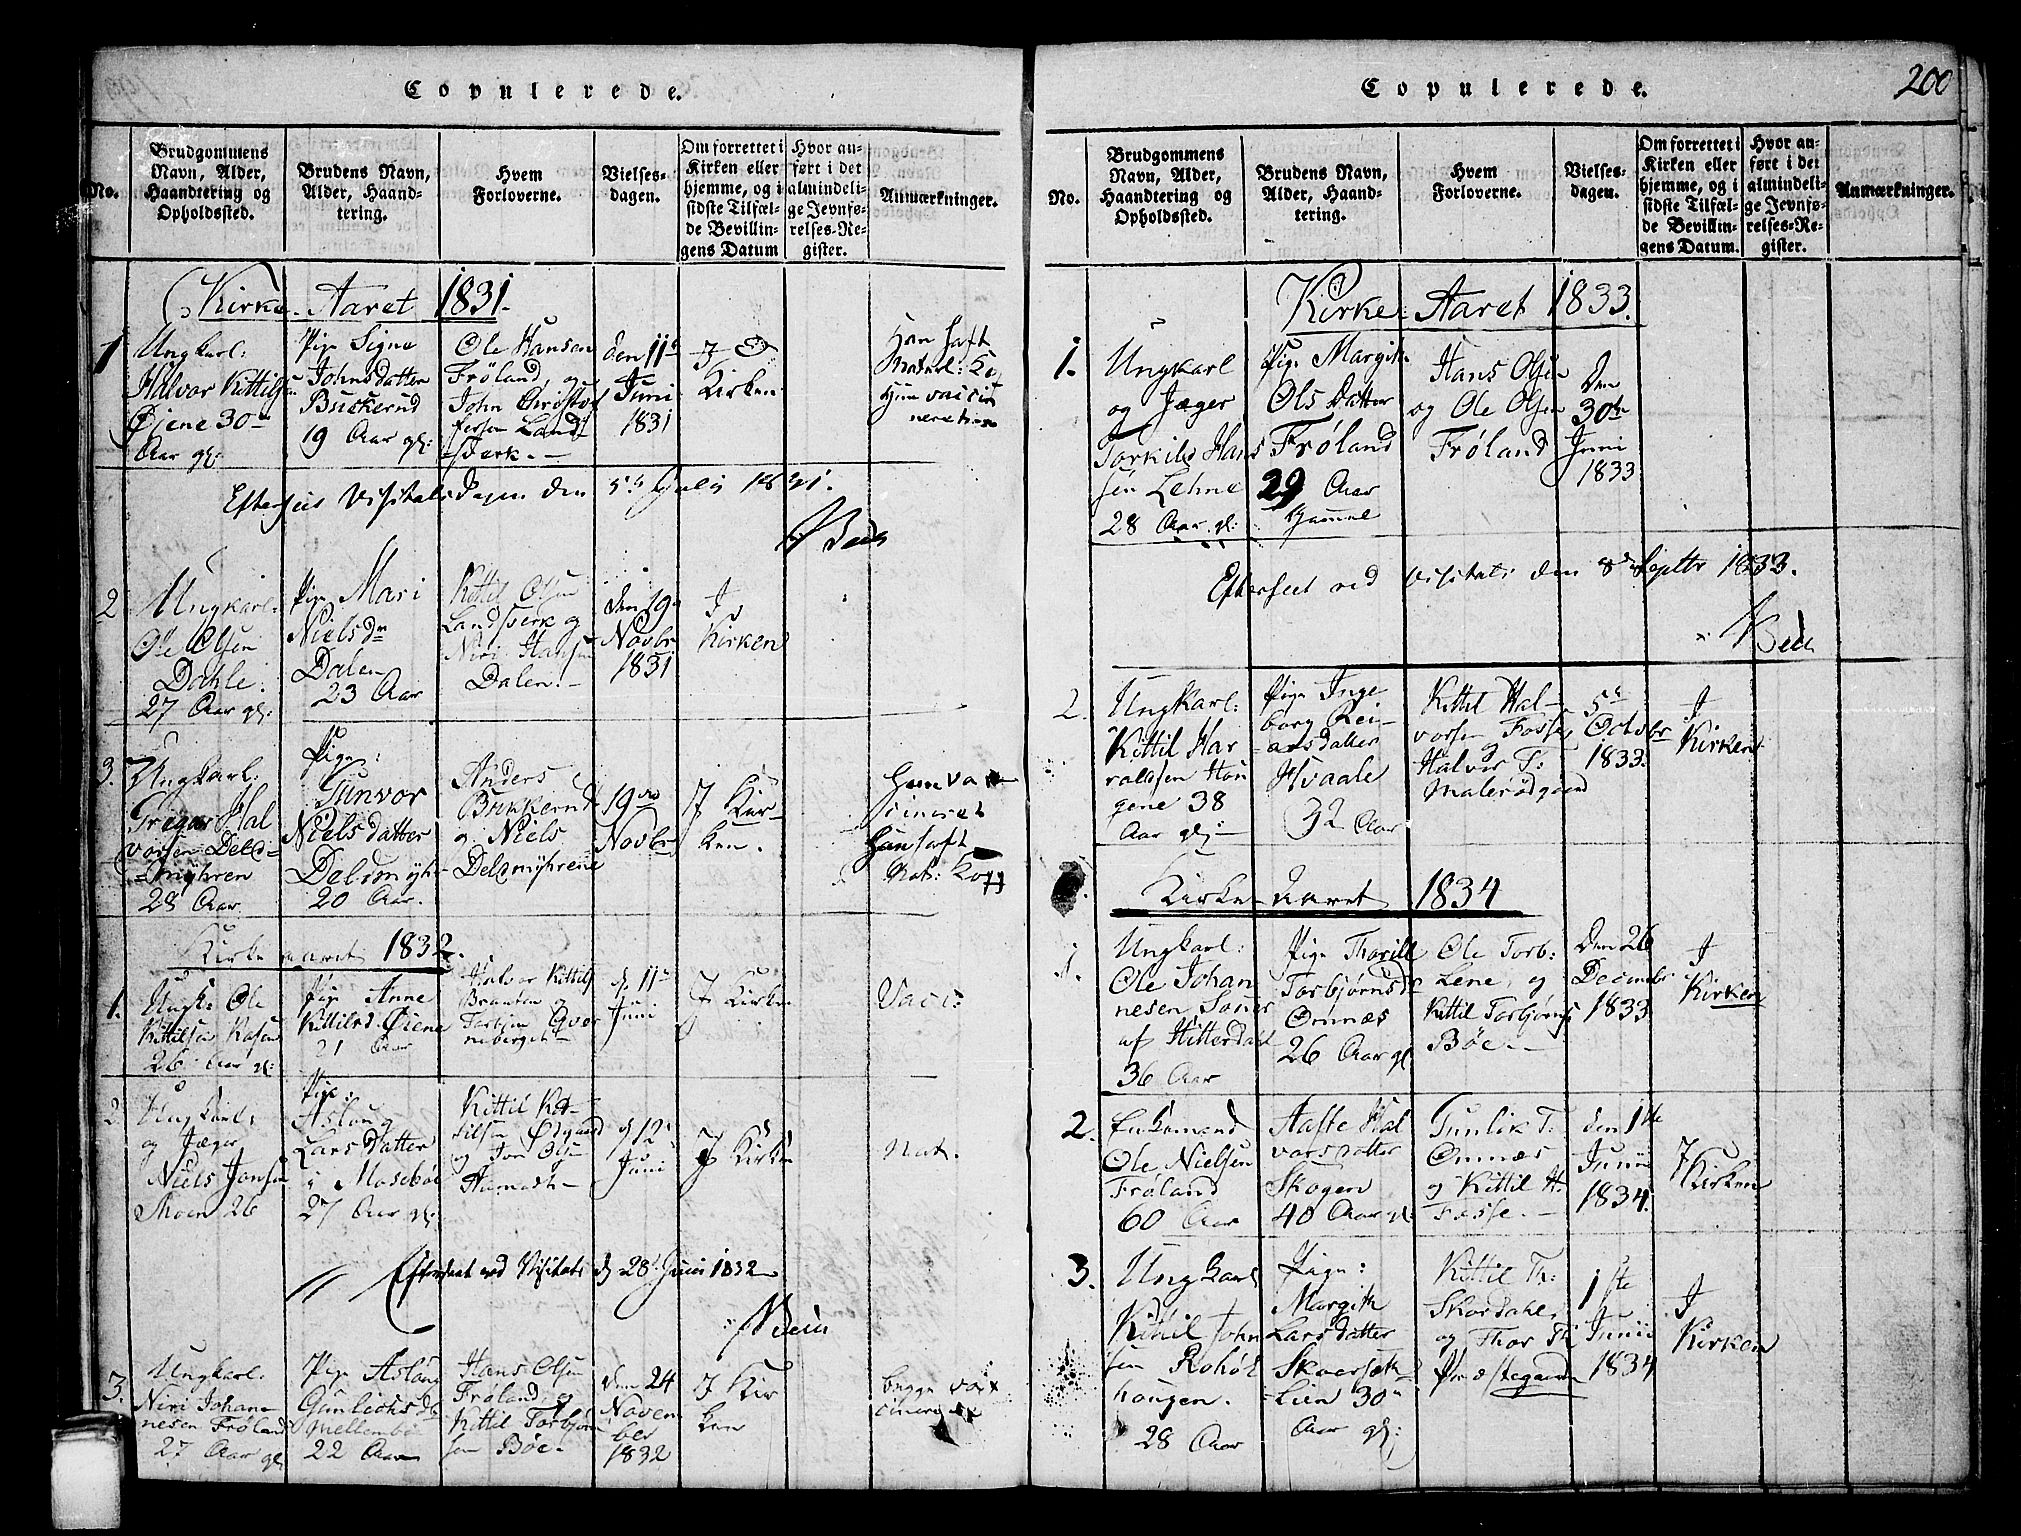 Copulerede.
No.
Brudgommens
Navn, Alder,
Haandtering og
Opholdssted.
Brudens Navn,
Alder, Haand-
tering.
Hvem
Forloverne.
Vielses-
dagen.
Om forrettet i
Kirken eller
hjemme, og i
sidste Tilfæl-
de Bevillin-
gens Datum
Hvor an-
ført i det
almindeli-
ge Jevnfø-
relses-Re-
gister.
Anmærkninger.
Kirke-Aaret 1831.
1
Ungkarl:
Halvor Kittils
Øiene 30
Aar gl:
Pige Signe
Johnsdatter
Buskerud
19 Aar gl:
Ole Hansen
Frøland, og
John Christof
fersen Land
sverk.
den 11
Juni
1831
I
Kirken
Han haft
Naturl: Kop
Hun vacci
neret
Efterseet Visitatsdagen den 5 Julij 1831.
2
Ungkarl:
Ole Olsen
Dahle.
27 Aar gl:
Pige Mari
Nielsdr
Dalen
23 Aar
Kittil Olsen
Landsverk og
Niri Hansen
Dalen.
den 19
Novbr
1831
I
Kirken
3.
Ungkarl:
Gregar Hal
vorsen Dels
myhren
28 Aar
Pige:
Gunvor
Nielsdatter
Delsmyhr
20 Aar.
Anders
Buskerud
og Niels
Delsmyhrene
19
Novbr
I Kir-
ken.
Hun vac
cineret
Han haft
Nat: Kopp
Kirke aaret 1832.
1.
Ungk: Ole
Kittilsen Kasen
26 Aar gl:
Pige Anne
Kittilsd. Øiene
21 Aar
Halvor Kittils
Braaten og
Torbjøn Qver
neberget
d 11
Juni
I Kirken
Vacc:
2
Ungkarl:
og Jæger
Niels Jonsen
Moen 26
Pige:
Asloug
Larsdatter
i Mosebøe
27 Aar gl:
Kittil Kit-
tilsen Ødgaard
og Jon Olsen
d 12
Juni
I Kirken
Nat.
Efterseet ved Visitats d 28 Juni 1832
3.
Ungkarl:
Niri Johan
nesen Frøland
27 Aar gl
Pige Asloug
Gunlichsd
Mellembøe
22 Aar
Hans Olsen
Frøland og
Kittil Torbjørn
sen Bøe
den 24
Novem
ber
1832
I Kir
ken
begge vac
cinerede
Copulerede.
200
No.
Brudgommens
Navn, Alder,
Haandtering og
Opholdssted.
Brudens Navn,
Alder, Haand-
tering.
Hvem
Forloverne.
Vielses-
dagen.
Om forrettet i
Kirken eller
hjemme, og i
sidste Tilfæl-
de Bevillin-
gens Datum.
Hvor an-
ført i det
almindeli-
ge Jevnfø-
relses-Re-
gister.
Anmærkninger.
Kirke-Aaret 1833.
1.
Ungkarl
og Jæger
Torkild Han
sen Lehne
28 Aar. gl:
Pige Margit
Ols Datter
Frøland
29 Aar
Gammel
Hans Olsen
og Ole Olsen
Frøland
Den
30te
Juni
1833
Efterseet ved Visitats den 8de Septbr 1833.
2.
Ungkarl:
Kittil Har
raldsen Hou
gene 38
Aar gl:
Pige Inge
borg Rei-
arsdatter
Hvaale
32 Aar
Kittil Hal-
vorsen Fosse,
og
Halvor T:
Malerødgaard
5
Octobr
1833.
I
Kirken
Kirke-Aaret 1834
1.
Ungkarl:
Ole Johan
nesen
af Hitterdahl
36 Aar
Pige Thorild
Torbjørnsdr
Omnæs
26 Aar gl
Ole Torb:
Lene, og
Kittil Torbjøns
Bøe.
Den 26
Decembr
1833
I
Kirken
2.
Enkemand
Ole Nielsen
Frøland
60 Aar
Aaste Hal
vorsdatter
Skogen
40 Aar gl:
Gunlik T:
Omnæs
og Kittil H:
Fosse.
den 1te
Junii
1834.
I
Kirken
3.
Ungkarl
Kittil John
sen Roholt
hougen.
28 Aar
Pige:
Margith
Larsdatter
Skaarsæth
Lien 30
Aar gl:
Kittil Th:
Skordahl,
og Thor Th
Præstegaard
1ste
Junii
1834
I
Kirken